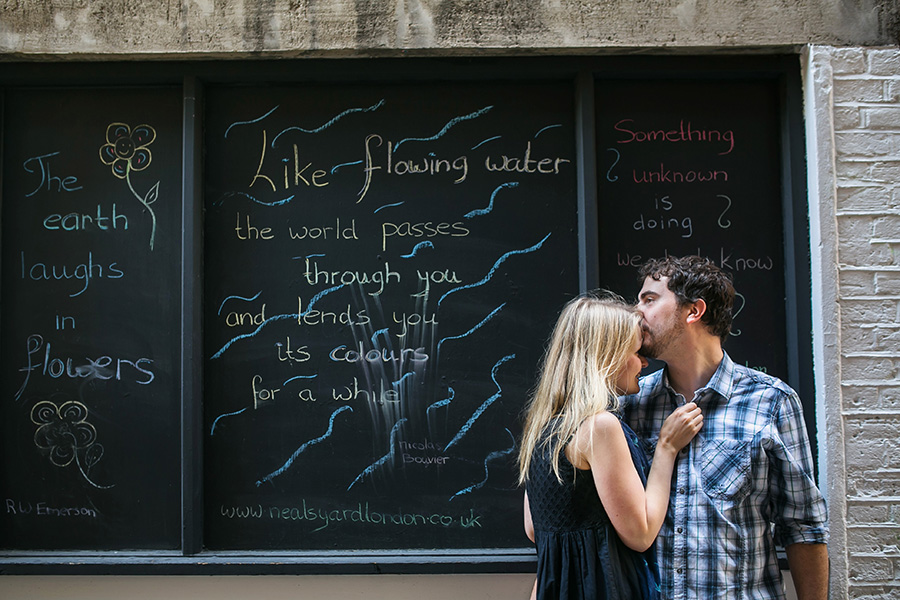 The
earth
laughs
in
flowers
RW Emerson
Like flowing water
the world passes
through you
and lends you
its colours
for a while
Nicolas
Bouvier
www.nealsyardlondon.co.uk
Something
unknown
is
doing
know